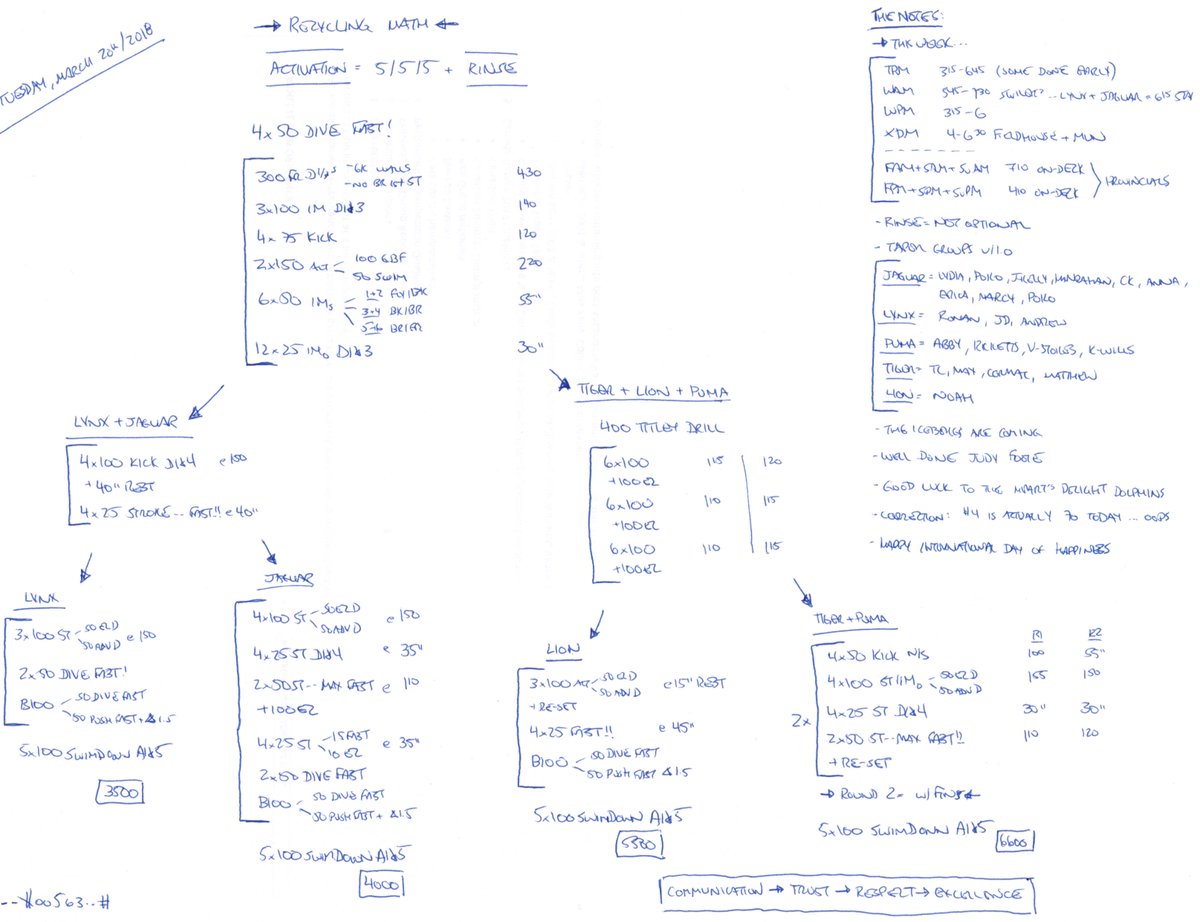 TUESDAY, MARCH 20th/2018
→ RECYCLING MATH ←
ACTIVATION = 5/5/5 + RINSE
4x50 DIVE FAST!
300 FR D1↓3 -6K WALLS
-NO BR 1st ST
430
3x100 IM D1↓3 140
4x75 KICK 120
2x150 ALT 100 GBF
50 SWIM
220
6x50 IMs 1+2 FLY/BK
3+4 BK/BR
5+6 BR/FR
55"
12x25 IMo D1↓3 30"
LYNX + JAGUAR
4x100 KICK D1↓4 e 150
+40" REST
4x25 STROKE... FAST!! e 40"
LYNX
3x100 ST 50 EZ D
50 ADV D
e 150
2x50 DIVE FAST!
B100 50 DIVE FAST
50 PUSH FAST + Δ1.5
5x100 SWIMDOWN A1↓5
3500
JAGUAR
4x100 ST 50 EZ D
50 ADV D
e 150
4x25 ST D1↓4 e 35"
2x50 ST-- MAX FAST e 110
+100 EZ
4x25 ST 15 FAST
10 EZ
e 35"
2x50 DIVE FAST
B100 50 DIVE FAST
50 PUSH FAST + Δ1.5
5x100 SWIMDOWN A1↓5
4000
TIGER + LION + PUMA
400 TITLEY DRILL
6x100 115 120
+100 EZ
6x100 110 115
+100 EZ
6x100 110 115
+100 EZ
LION
3x100 ALT 50 EZ D
50 ADV D
e 15" REST
+RE-SET
4x25 FAST!! e 45"
B100 50 DIVE FAST
50 PUSH FAST Δ1.5
5x100 SWIMDOWN A1↓5
TIGER + PUMA
R1 R2
4x50 KICK N/S 100 55"
4x100 ST/IMo 50 EZ D
50 ADV D
155 150
2x
4x25 ST D1↓4 30" 30"
2x50 ST--MAX FAST!! 110 120
+RE-SET
→ ROUND 2 = W/FINS ←
5x100 SWIMDOWN A1↓5
6600
COMMUNICATION → TRUST → RESPECT → EXCELLENCE
THE NOTES:
→ THE WEEK...
TPM 315-645 (SOME DONE EARLY)
WAM 545-730 ...LYNX + JAGUAR = 615 START
WPM 315-6
XPM 4-630 FIELDHOUSE + MUN
FAM+SAM+SuAM 710 ON-DECK
FPM+SPM+SuPM 410 ON-DECK
PROVINCIALS
- RINSE = NOT OPTIONAL
- TAPER GROUPS v/1.0
JAGUAR = LYDIA, POKO, HANRAHAN, CK, ANNA,
ERICA, MARCY, POKO
LYNX = RONAN, JD, ANDREW
PUMA = ABBY, RICKETTS, V-STOKES, K-WILLS
TIGER = TC, MAX, CORMAC, MATTHEW
LION = NOAH
- THE ICEBERGS ARE COMING
- WELL DONE JUDY FOOTE
- GOOD LUCK TO THE HEART'S DELIGHT DOLPHINS
- CORRECTION: #4 IS ACTUALLY 70 TODAY ... OOPS
- HAPPY INTERNATIONAL DAY OF HAPPINESS